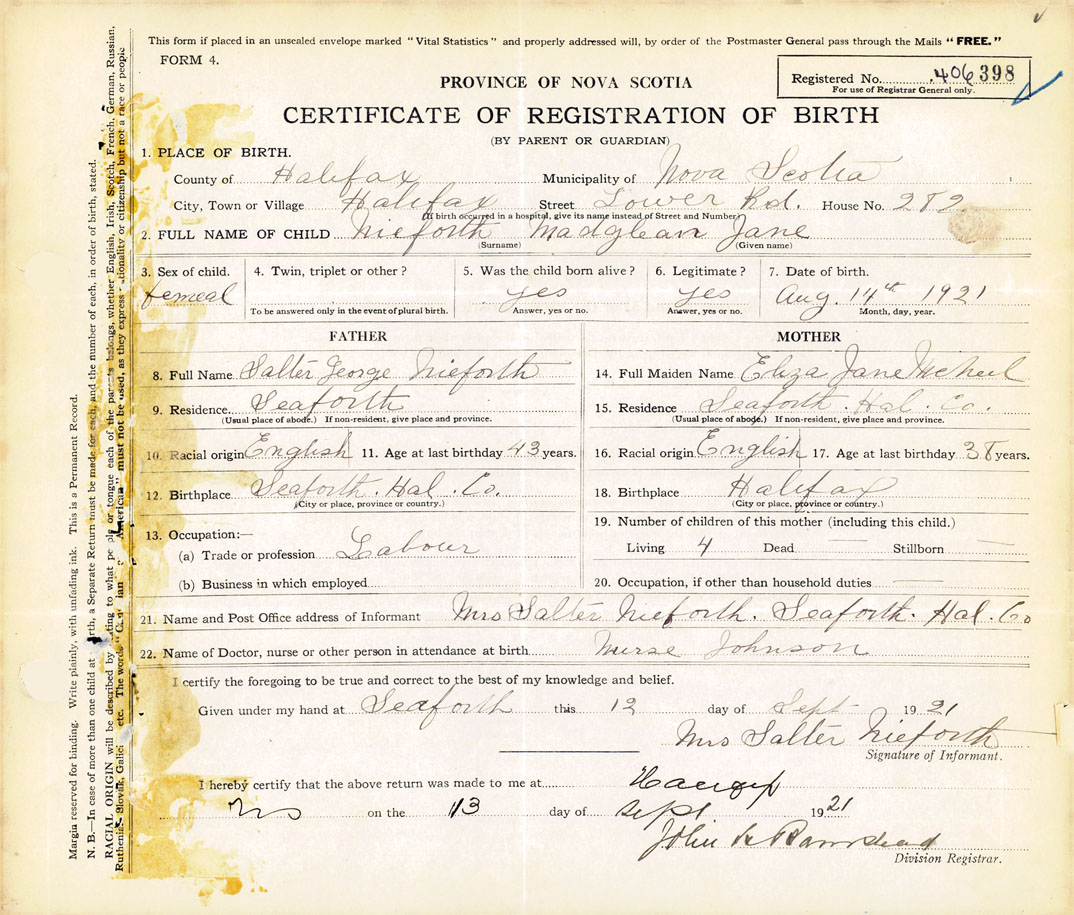 This form if placed in an unsealed envelope marked "Vital Statistics" and properly addressed will, by order of the Postmaster General pass through the Mails "FREE."
FORM 4.
Registered No. 406398
For use of Registrar General only.
PROVINCE OF NOVA SCOTIA
CERTIFICATE OF REGISTRATION OF BIRTH
(BY PARENT OR GUARDIAN)
1. PLACE OF BIRTH.
County of Halifax Municipality of Nova Scotia
City, Town or Village Halifax Street Lower Rd. House No. 282
(If birth occurred in a hospital, give its name instead of Street and Number)
2. FULL NAME OF CHILD Nieforth Madglean Jane
(Surname) (Given name)
3. Sex of child. 4. Twin, triplet or other? 5. Was the child born alive? 6. Legitimate? 7. Date of birth.
femeal yes yes Aug. 14th 1921
To be answered only in the event of plural birth. Answer, yes or no. Answer, yes or no. Month, day, year.
FATHER
8. Full Name Salter George Nieforth
9. Residence. Seaforth
(Usual place of abode.) If non-resident, give place and province.
10. Racial origin English 11. Age at last birthday 43 years.
12. Birthplace Seaforth. Hal. Co.
(City or place, province or country.)
13. Occupation:—
(a) Trade or profession Labour
(b) Business in which employed
MOTHER
14. Full Maiden Name Eliza Jane McNeil
15. Residence Seaforth. Hal. Co.
(Usual place of abode.) If non-resident, give place and province.
16. Racial origin English 17. Age at last birthday 38 years.
18. Birthplace Halifax
(City or place, province or country.)
19. Number of children of this mother (including this child.)
Living 4 Dead — Stillborn —
20. Occupation, if other than household duties —
21. Name and Post Office address of Informant Mrs Salter Nieforth. Seaforth. Hal. Co
22. Name of Doctor, nurse or other person in attendance at birth Nurse Johnson
I certify the foregoing to be true and correct to the best of my knowledge and belief.
Given under my hand at Seaforth this 12 day of Sept 1921
Mrs Salter Nieforth
Signature of Informant.
I hereby certify that the above return was made to me at
on the 13 day of Sept 1921
John
Division Registrar.
Margin reserved for binding. Write plainly, with unfading ink. This is a Permanent Record.
N. B.—In case of more than one child at birth, a Separate Return must be made for each, and the number of each, in order of birth, stated.
RACIAL ORIGIN will be described by stating to what people or tongue each of the parents belongs, whether English, Irish, Scotch, French, German, Russian,
Ruthenian, Slovak, Galician etc. The words "Canadian" "American" must not be used, as they express nationality or citizenship but not a race or people